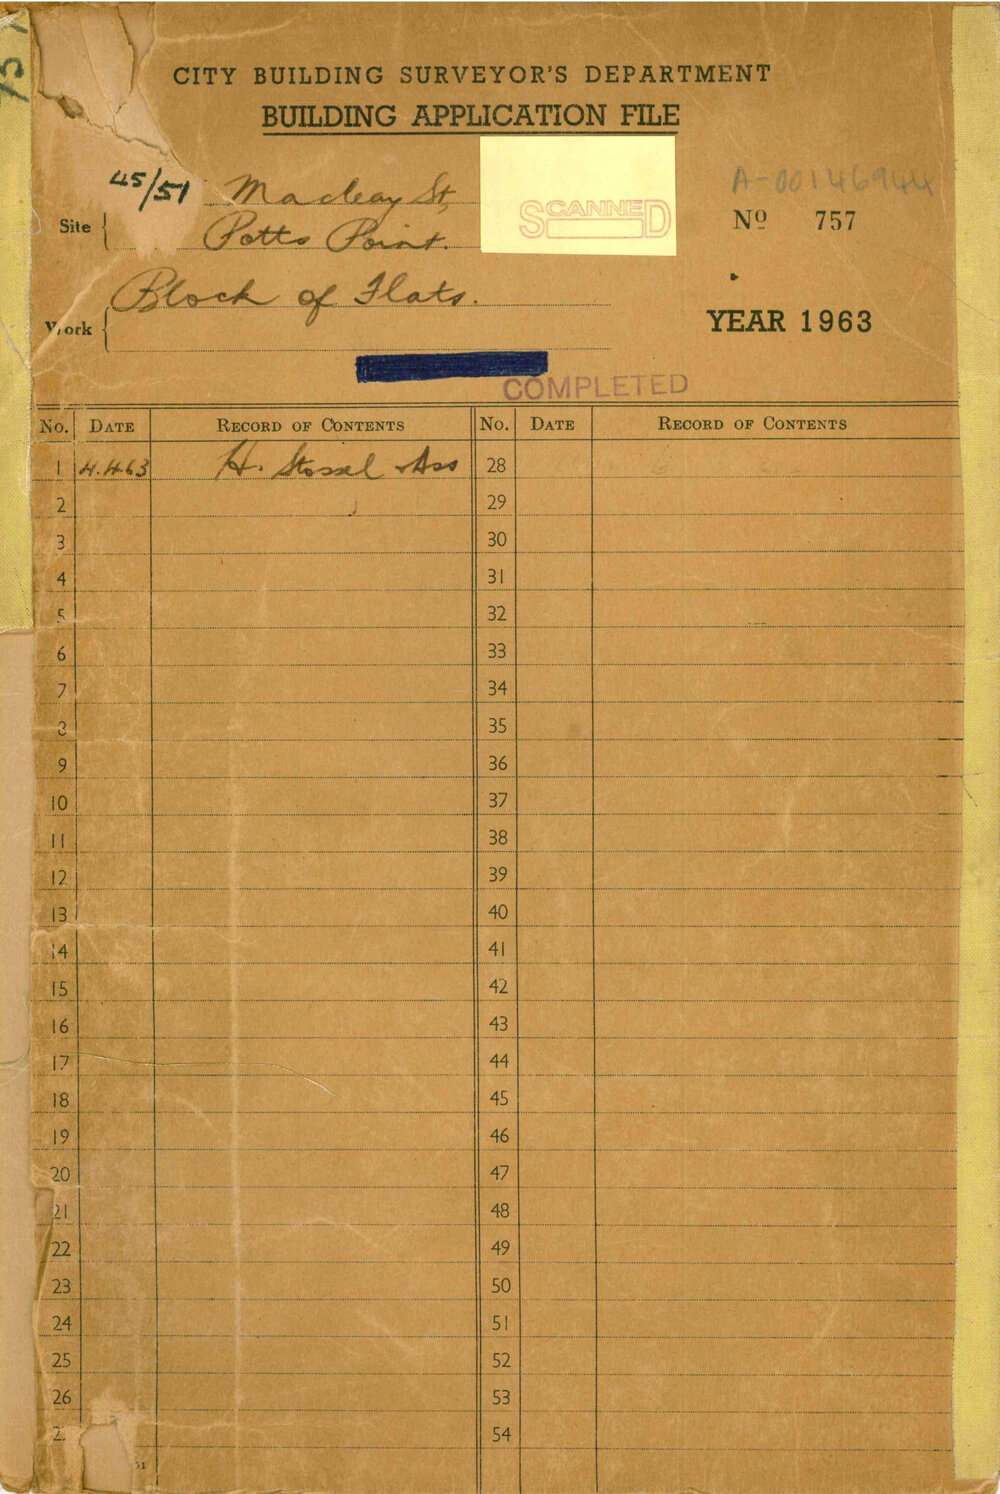 CITY BUILDING SURVEYOR'S DEPARTMENT
BUILDING APPLICATION FILE
757
A-00146944
Site
45/51 Macleay St,
Potts Point.
SCANNED
Nº 757
Work
Block of Flats.
YEAR 1963
COMPLETED
No. DATE RECORD OF CONTENTS No. DATE RECORD OF CONTENTS
1 4.4.63 H. Stossel & Ass 28
2 29
3 30
4 31
5 32
6 33
7 34
8 35
9 36
10 37
11 38
12 39
13 40
14 41
15 42
16 43
17 44
18 45
19 46
20 47
21 48
22 49
23 50
24 51
25 52
26 53
2 54
51